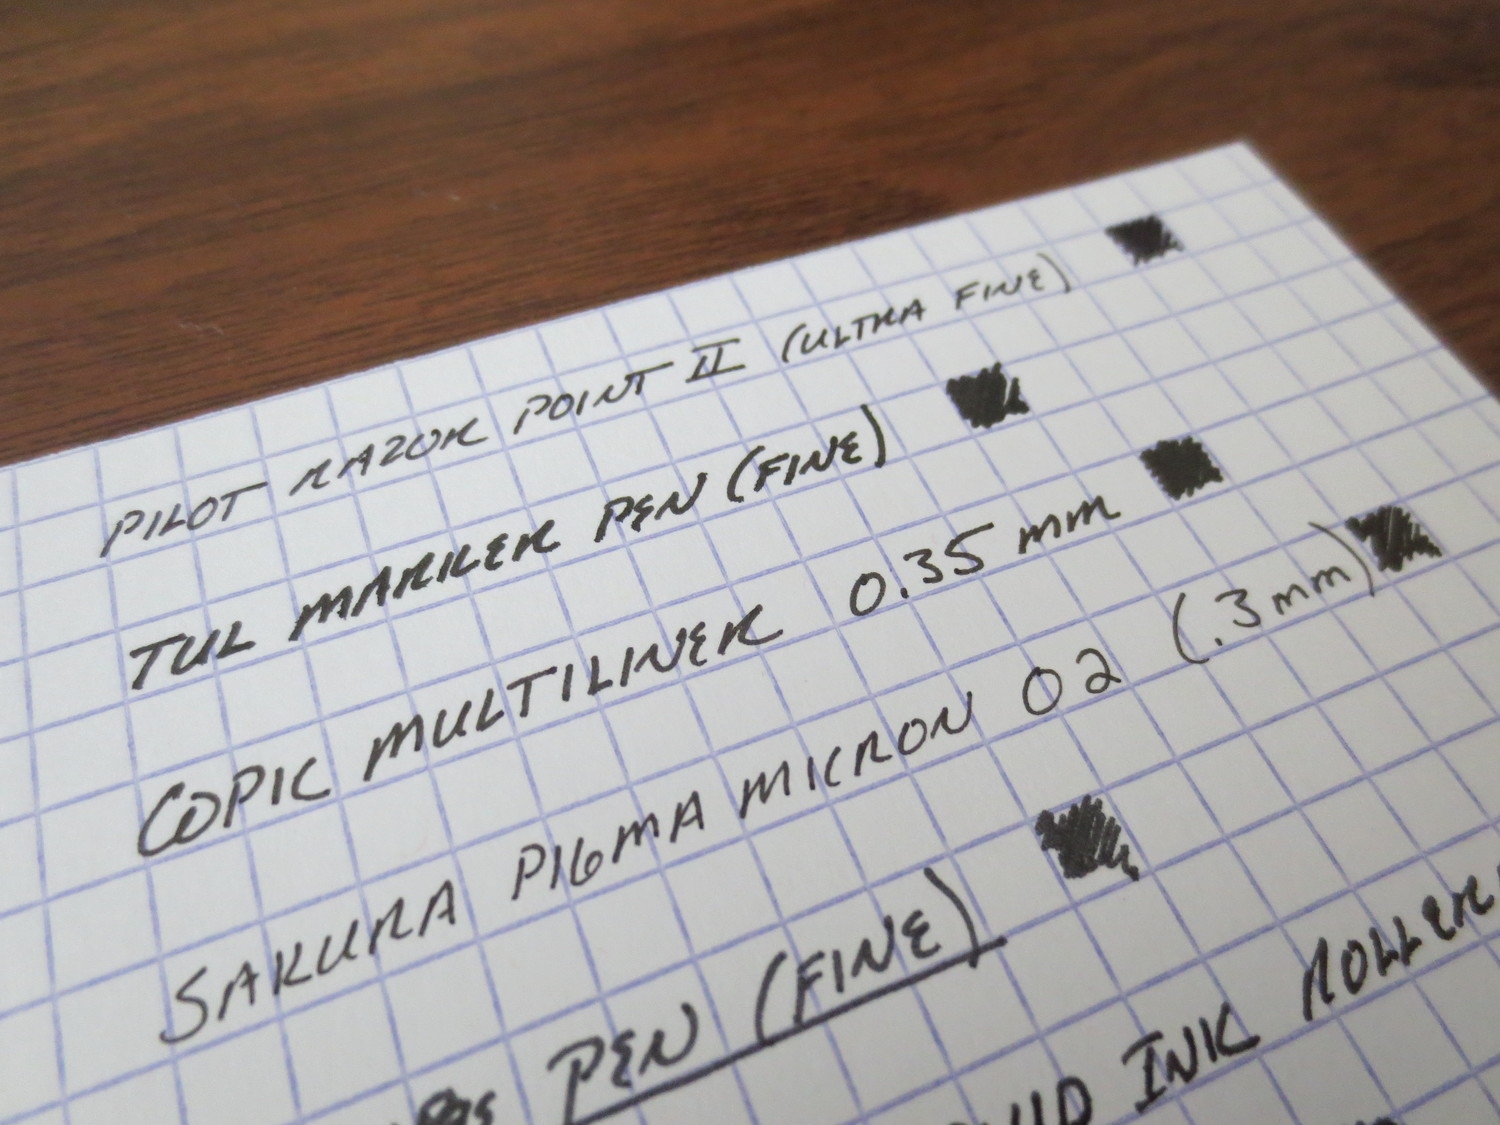 PILOT RAZOR POINT II (ULTRA FINE)
TUL MARKER PEN (FINE)
COPIC MULTILINER 0.35 mm
SAKURA PIGMA MICRON 02 (.3mm)
PEN (FINE)
INK ROLLER